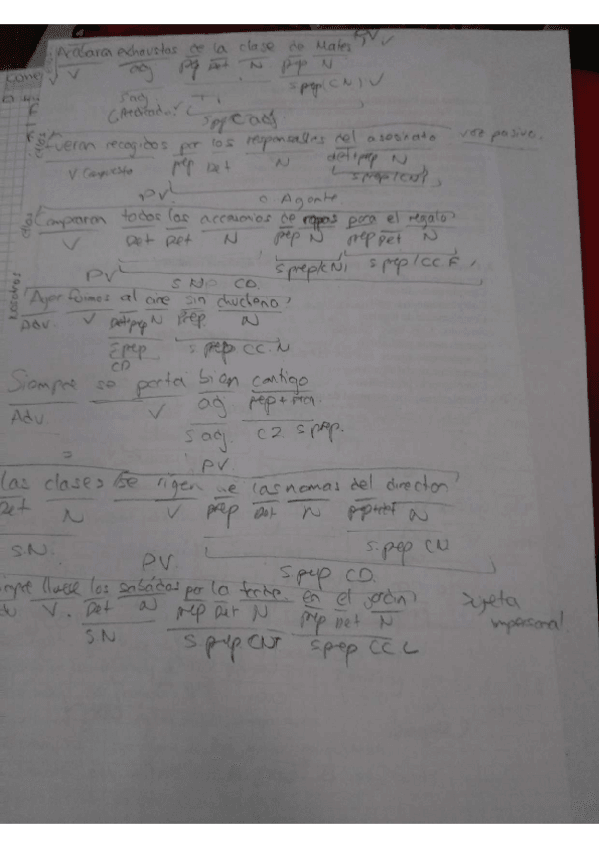 Acabaran exhaustas de la clase de Mates
V adj prep Det N prep N
S adj S prep (CN) V
S prep C adj
Fueron recogidos por los responsables del asesinato voz pasiva.
V compuesto prep Det N det+prep N
S prep/CN
PV C. Agente
Compraron todos los accesorios de ropas para el regalo
V Det Det N prep N prep Det N
PV S prep/CN S prep/CC.F
S N CD.
Nosotros
Ayer fuimos al cine sin chucherio
Adv. V Det+prep N prep N
S prep S prep CC.N
CD
Siempre se porta bien contigo
Adv. V adj prep + prn.
S adj. C2 S prep.
PV
las clases se rigen de las normas del director
Det N V prep Det N prep+det N
S.N. S.prep CN
PV. S prep CD.
llueve los sábados por la tarde en el jardín Sujeto
V. Det N prep Det N prep Det N impersonal
S.N S prep. CNT S prep CC L